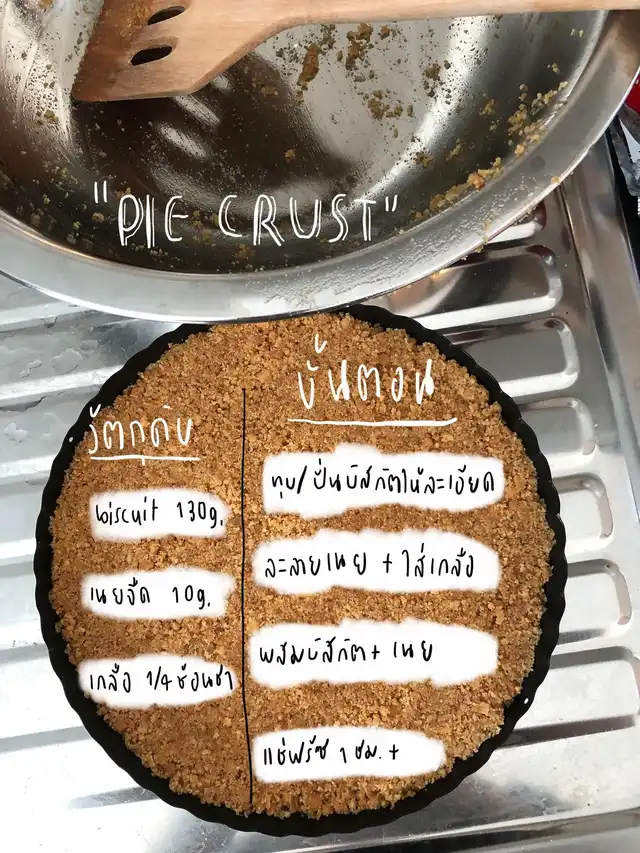 "PIE CRUST"
วัตถุดิบ
biscuit 130g.
เนยจืด 10g.
เกลือ 1/4 ช้อนชา
ขั้นตอน
ทุบ/ปั่นบิสกิตให้ละเอียด
ละลายเนย + ใส่เกลือ
ผสมบิสกิต + เนย
แช่ฟรีซ 1 ชม. +